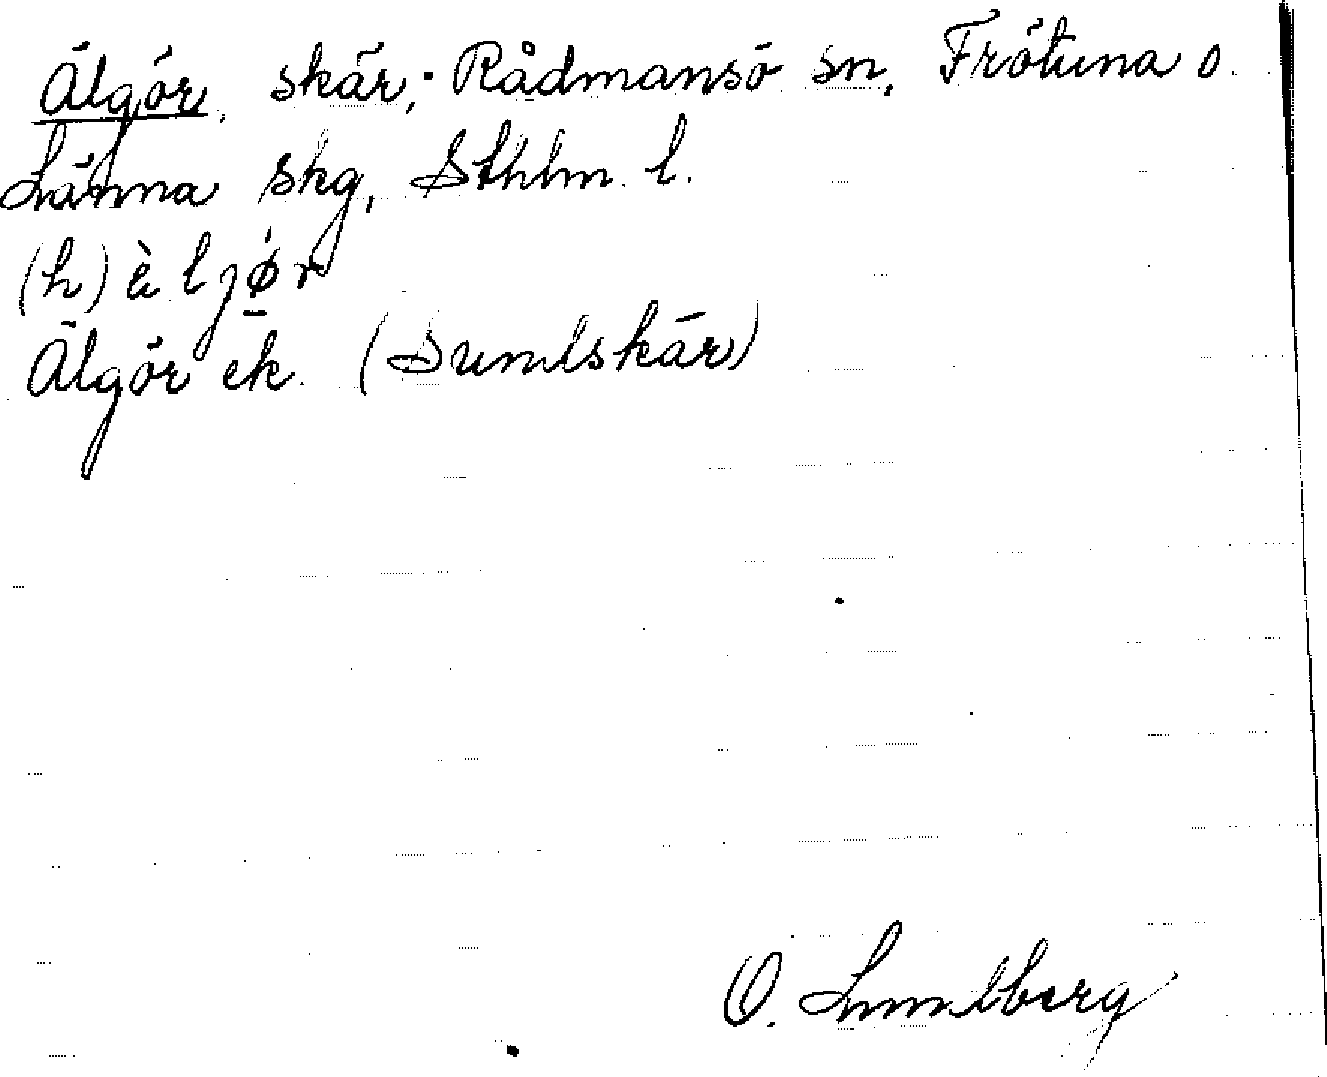 Älgör, skär, Rådmansö sn, Frötuna o.
Länna skg, Sthlm l.
(h)è ljǿr
Älgör ek. (Sundskär)
O. Lundberg